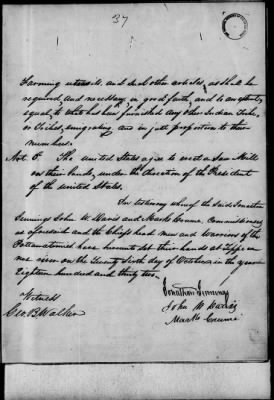 37
farming utensils, and such other articles, as shall be
required, and necessary, in good faith, and to an extent
equal to what has been furnished any other Indian Tribe
or Tribes, emigrating, and in just proportion to their
numbers.
Art. 5. The United States agree to erect a Saw Mill
on their lands, under the direction of the President
of the United States.
In testimony whereof the said Jonathan
Jennings John W Davis and Marks Crume, Commissioners
as aforesaid and the Chiefs head men and Warriors of the
Pottawatimies have hereunto set their hands at Tippecanoe
river on the Twenty Sixth day of October in the year
Eighteen hundred and thirty two.
Witness
Geo. B Walker
Jonathan Jennings
John W Davis
Marks Crume